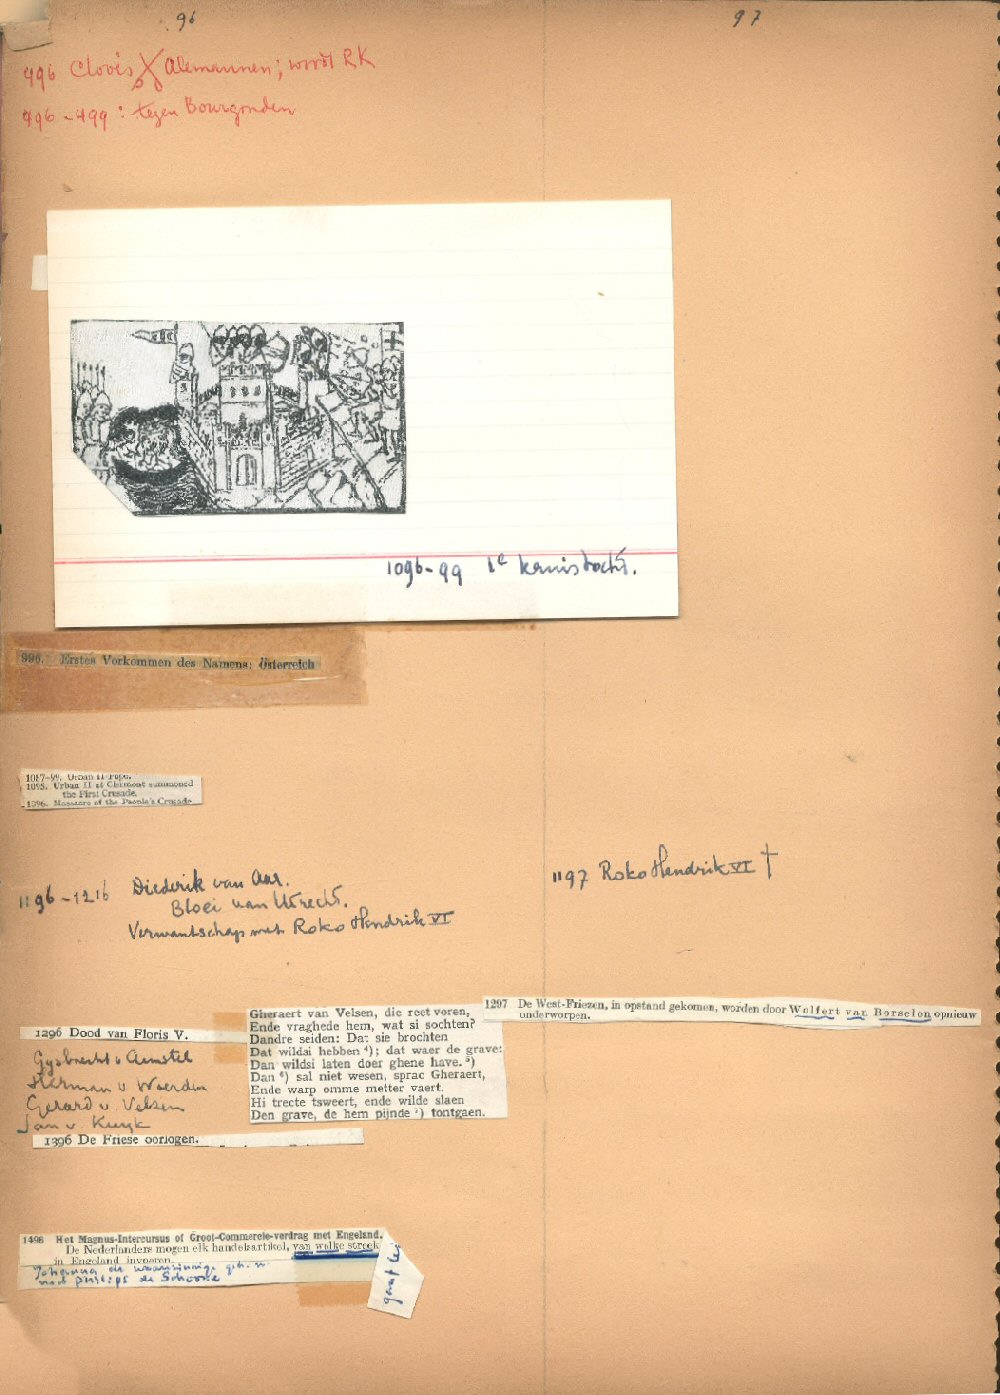 96
97
496 Clovis Alemannen; wordt RK
496-499: tegen Bourgonden
1096-99 1e kruistocht.
996. Erstes Vorkommen des Namens: Österreich
1087-99. Urban II Pope.
1095. Urban II at Clermont summoned
the First Crusade.
1096. Massacre of the People's Crusade
1196-1216 Diederik van Aar.
Bloei van Utrecht.
Verwantschap met Roko Hendrik VI
1197 Roko Hendrik VI †
1296 Dood van Floris V.
Gysbrecht v Aemstel
Herman v Woerden
Gerard v. Velsen
Jan v. Kuyk
Gheraert van Velsen, die reet voren,
Ende vraghede hem, wat si sochten?
Dandre seiden: Dat sie brochten
Dat wildsi hebben ⁴); dat waer de grave:
Dan wildsi laten doer ghene have. ⁵)
Dan ⁶) sal niet wesen, sprac Gheraert,
Ende warp omme metter vaert.
Hi trecte tsweert, ende wilde slaen
Den grave, de hem pijnde ⁷) tontgaen.
1297 De West-Friezen, in opstand gekomen, worden door Wolfert van Borselen opnieuw
onderworpen.
1396 De Friese oorlogen.
1496 Het Magnus-Intercursus of Groot-Commercie-verdrag met Engeland.
De Nederlanders mogen elk handelsartikel, van welke streek
in Engeland invoeren.
Johanna de waanzinnige geh. m
met Philips de Schoone